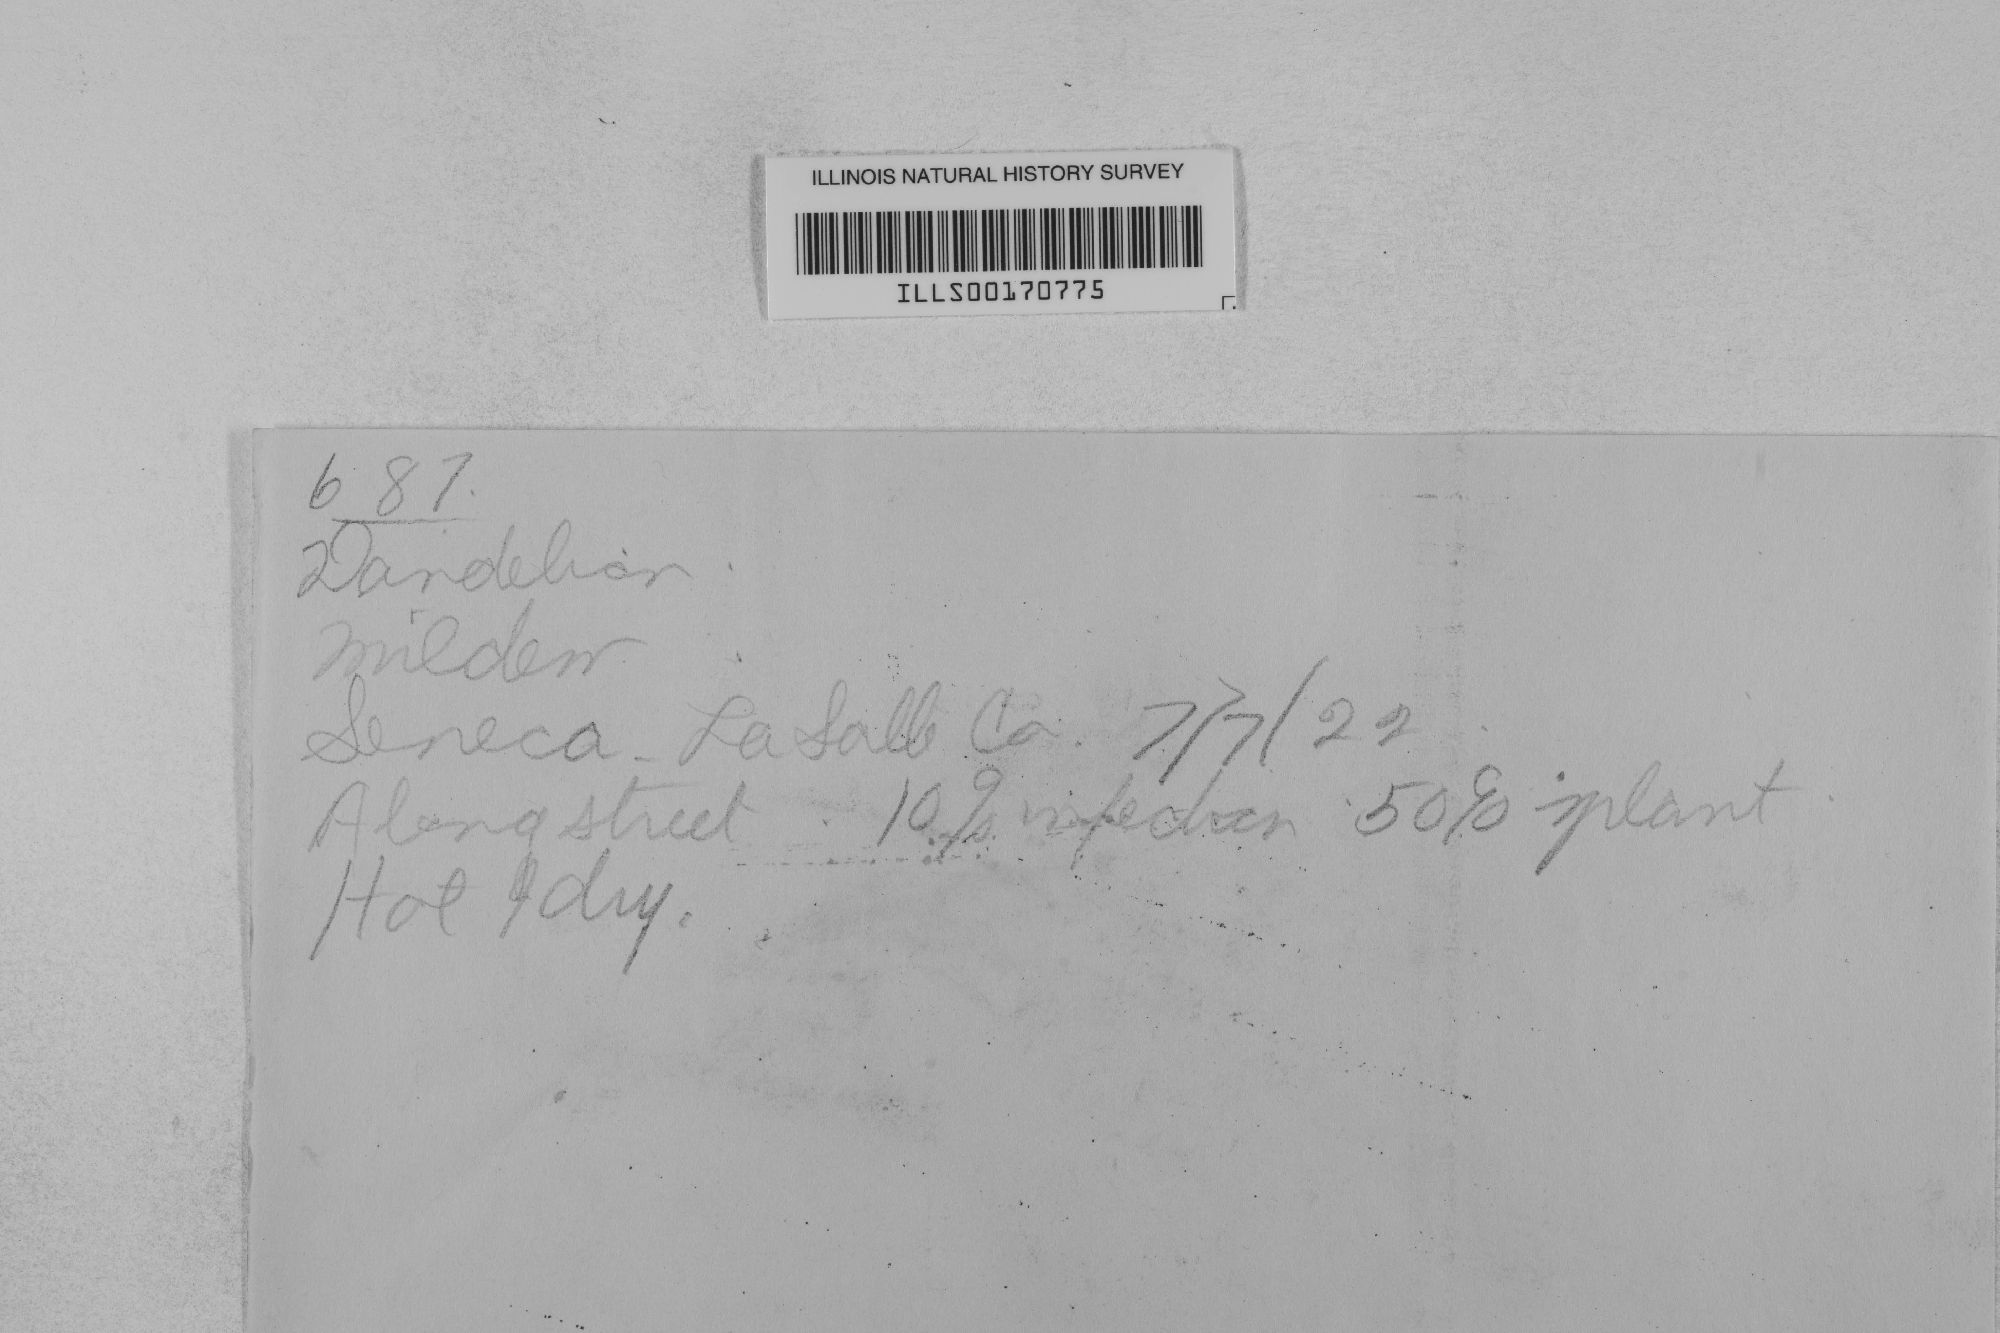 ILLINOIS NATURAL HISTORY SURVEY
ILLS00170775
6 87.
Dandelion.
Mildew
Seneca - LaSalle Co. 7/7/22.
Along street. 10% infection 50% plant.
Hot & dry.